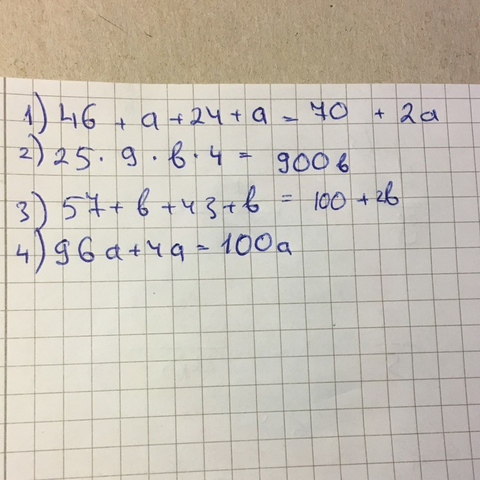 1) 46 + a + 24 + a = 70 + 2a
2) 25 · 9 · b · 4 = 900 b
3) 57 + b + 43 + b = 100 + 2b
4) 96a + 4a = 100a